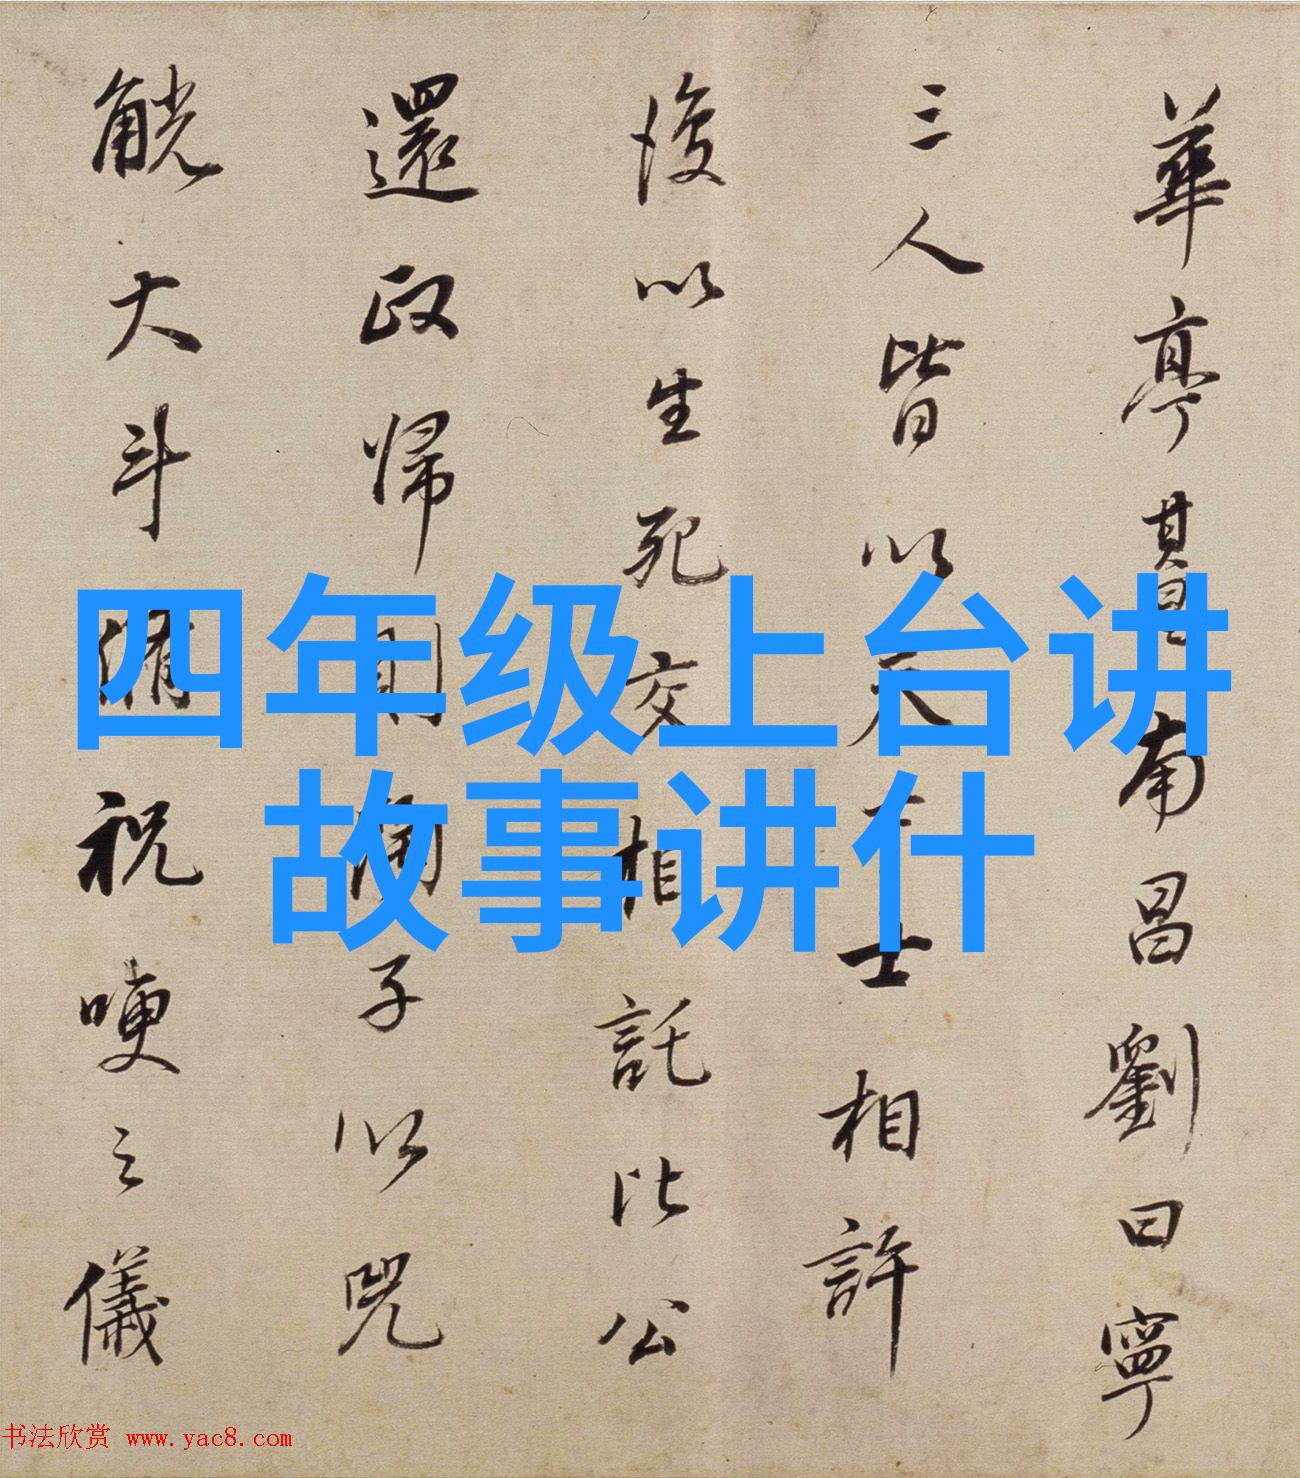 華亭其昌南昌劉曰寧
三人皆以天下士相許
後以生死交相託比公
還政歸則陶子以兕
觥大斗脩祝哽之儀
四年级上台讲
故事讲什
书法欣赏 www.yac8.com